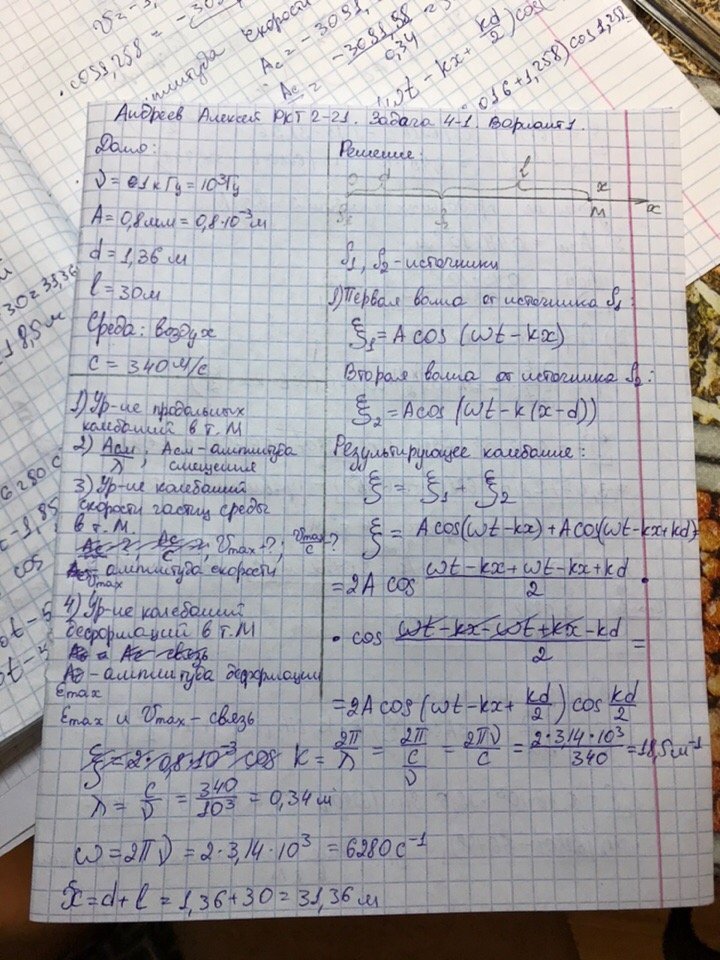 Андреев Алексей РКТ2-21. Задача 4-1. Вариант 1.
Дано:
ν = 1 кГц = 10³ Гц
A = 0,8 мм = 0,8·10⁻³ м
d = 1,36 м
l = 30 м
Среда: воздух
c = 340 м/с
1) Ур-ие продольных
колебаний в т. М
2) Aсм/λ; Aсм - амплитуда
смещения
3) Ур-ие колебаний
скорости частиц среды
в т. М
Vmax - ?; Vmax/c ?
Vmax - амплитуда скорости
4) Ур-ие колебаний
деформаций в т. М
εmax - амплитуда деформации
εmax и Vmax - связь
Решение:
O d l x
S₁ S₂ M x
S₁, S₂ - источники
1) Первая волна от источника S₁:
ξ₁ = A cos (ωt - kx)
Вторая волна от источника S₂:
ξ₂ = A cos (ωt - k(x-d))
Результирующее колебание:
ξ = ξ₁ + ξ₂
ξ = A cos(ωt-kx) + A cos(ωt-kx+kd) =
= 2A cos (ωt-kx+ωt-kx+kd)/2 ·
· cos (ωt-kx-ωt+kx-kd)/2 =
= 2A cos (ωt-kx+ kd/2) cos kd/2
ξ = 2·0,8·10⁻³ cos k = 2π/λ = 2π/(c/ν) = 2πν/c = 2·3,14·10³/340 = 18,5 м⁻¹
λ = c/ν = 340/10³ = 0,34 м
ω = 2πν = 2·3,14·10³ = 6280 с⁻¹
x = d + l = 1,36 + 30 = 31,36 м